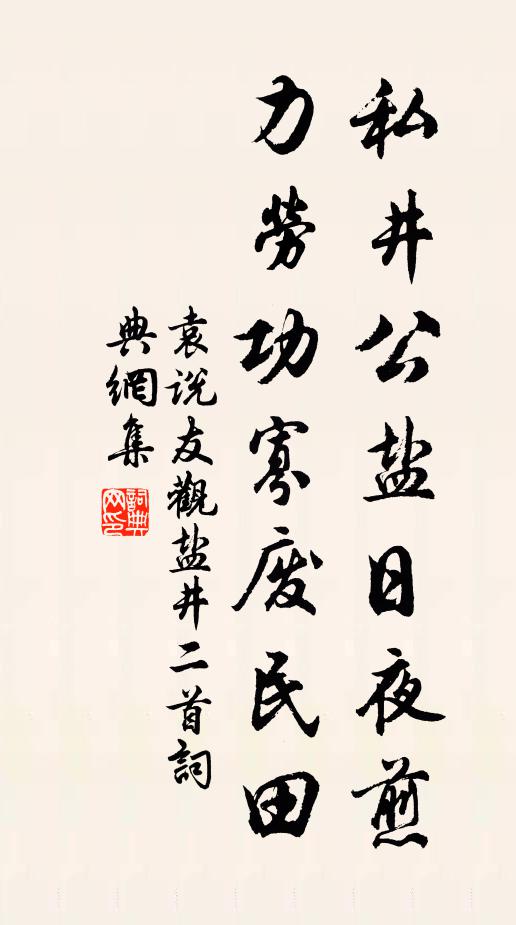 私井公盐日夜煎
力勞功寡废民田
袁说友觀盐井二首詞
典網集
詞典
网印